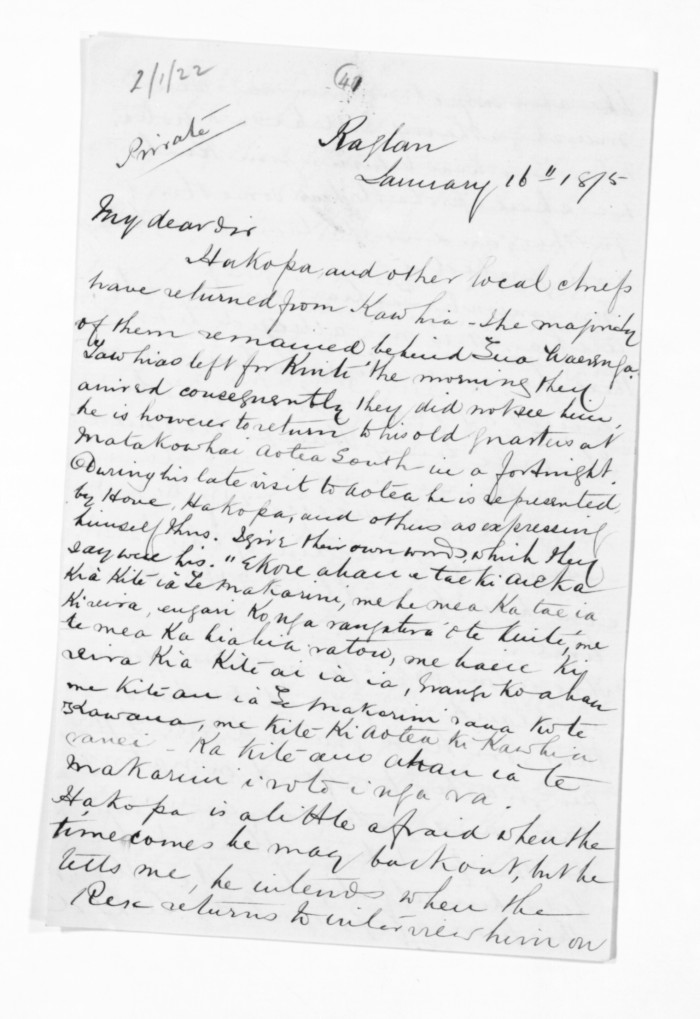 2/1/22
41
Private
Raglan
January 16" 1875
My dear Sir
Hakopa, and other local chiefs
have returned from Kawhia - the majority
of them remained behind
Tawhiao left for Kuiti the morning they
arrived consequently they did not see him,
he is however to return to his old quarters at
Matakowhai Aotea South in a fortnight.
During his late visit to Aotea he is represented
by Hone, Hakopa, and others as expressing
himself thus. I give their own words, which they
say were his. " Ekore ahau e tae ki
Kia Kite ia Te Makarini, me he mea Ka tae ia
Ki reira, engari Ko nga rangatira o te Kuiti, me
te mea Ka hiahia ratou, me haere Ki
reira Kia Kite ai ia ia, Ko ahau
me Kite au ia Te Makarini raua Ko te
Kawana, me Kite Ki Aotea Ki Kawhia
ranei - Ka Kite ano ahau ia te
Makarini i roto i nga ra.
Hakopa is a little afraid when the
time comes he may back out, but he
tells me, he intends when the
Rex returns to interview him on